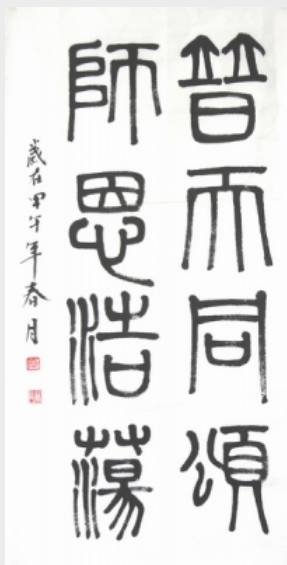 普天同頌
師恩浩蕩
歲在甲午年春月